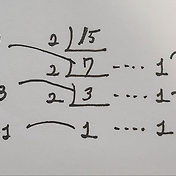 2 | 15
2 | 7 ---- 1
3 2 | 3 ---- 1
1 1 ---- 1